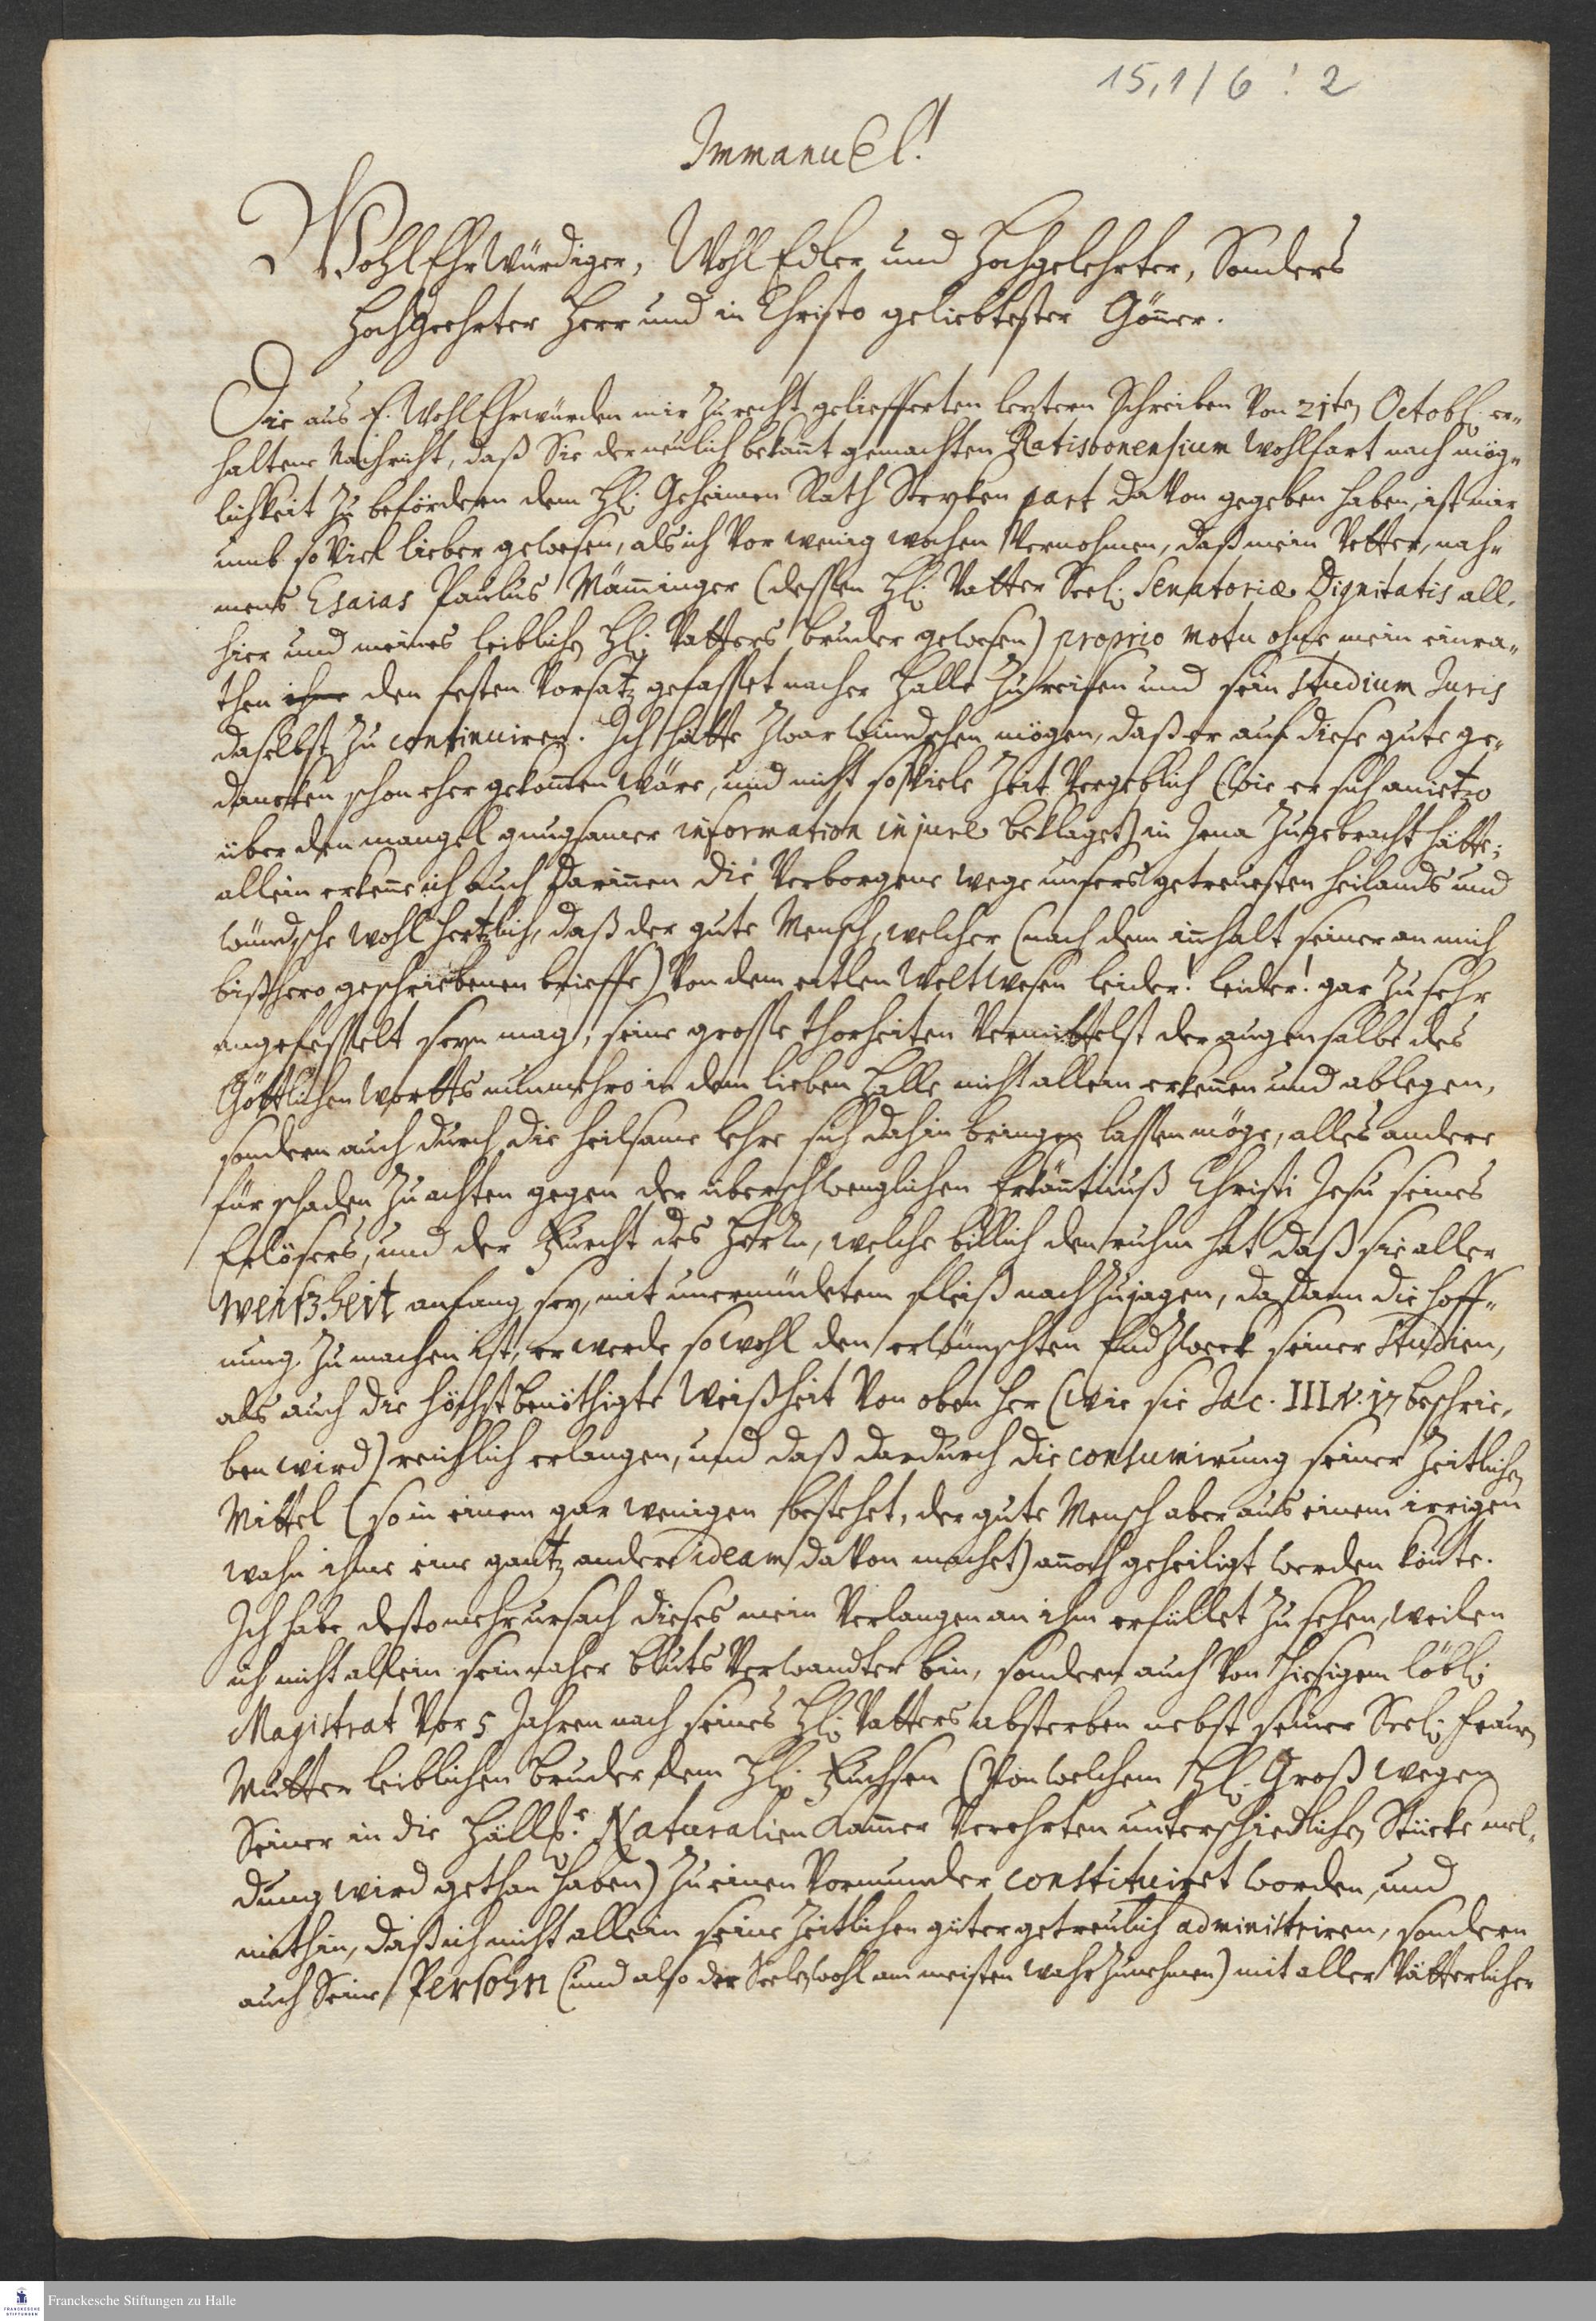 15,1/6 : 2
ImmanuEl!
WohlEhrWürdiger, WohlEdler und Hochgelehrter, Sonders
HochGeehrter Herr und in Christo geliebtester Gönner.
Die aus E. WohlEhrwürden mir zu recht geliefferten letztern Schreiben von 21ten Octobr. er-
haltene Nachricht, daß Sie der neulich bekañt gemachten Ratisbonensium wohlfart nach mög-
lichkeit zu befördern dem H. Geheimen Rath Stryken part davon gegeben haben, ist mir
umb so viel lieber gewesen, als ich vor wenig wochen vernohmen, daß mein Vetter, nah-
mens Esaias Paulus Mäminger (dessen H. Vatter Seel. Senatoriæ Dignitatis all-
hier und meines leiblichen H. Vatters bruder gewesen) proprio motu ohne mein einra-
then ihme den festen Vorsatz gefasset nacher Halle zu reisen und sein studium Juris
daselbst zu continuiren. Ich hätte zwar wündschen mögen, daß er auf diese gute ge-
dancken schon eher gekom̃en wäre, und nicht so viele Zeit vergeblich (wie er sich anietzo
über den mangel gnugsamer information in jure beklaget) in Jena zugebracht hätte;
allein erkenne ich auch darin̄en die verborgene wege unsers getreuesten Heilands und
wündsche wohl hertzlich, daß der gute Mensch, welcher (nach dem in̄halt seiner an mich
bißhero geschriebenen brieffe) von dem eitlen Weltwesen leider! leider! gar zu sehr
angefesselt seyn mag, seine grosse thorheiten vermittelst der augensalbe des
Göttlichen wortts nunmehro in dem lieben Halle nicht allein erken̄en und ablegen,
sondern auch durch die heilsame lehre sich dahin bringen lassen möge, alles andere
für schaden zu achten gegen der überschwenglichen Erkän̄tnuß Christi Jesu seines
Erlösers, und der Furcht des HErrn, welche billich den ruhm hat daß sie aller
weißheit anfang sey, mit unermüdetem fleiß nachzujagen, da dann die hoff-
nung zu machen ist, er werde sowohl den erwünschten Endzweck seiner Studien,
als auch die höchstbenöthigte Weißheit von oben her (wie sie Jac. III v. 17 beschrie-
ben wird) reichlich erlangen, und daß dardurch die consumirung seiner zeitlichen
Mittel (so in einem gar wenigen bestehet, der gute Mensch aber aus einem irrigen
wahn ihme eine gantz andere ideam davon machet) an̄och geheiligt werden kön̄te.
Ich habe destomehr ursach dieses mein Verlangen an ihm erfüllet zu sehen, weilen
ich nicht allein sein naher bluts Verwandter bin, sondern auch von hiesigem löbl.
Magistrat vor 5 Jahren nach seines H. Vatters absterben nebst seiner Seel. Frauen
Mutter leiblichen bruder, dem H. Fuchsen (von welchem H. Groß wegen
Seiner in die Hällsche Naturalien Kam̃er verehrten unterschiedlichen Stücke mel-
dung wird gethan haben) zu einen Vormunder constituiret worden, und
mithin, daß ich nicht allein seine zeitlichen güter getreulich administriren, sondern
auch Seine Persohn (und also der Seelen wohl am meisten wahrzunehmen) mit aller Vätterlicher
Franckesche Stiftungen zu Halle